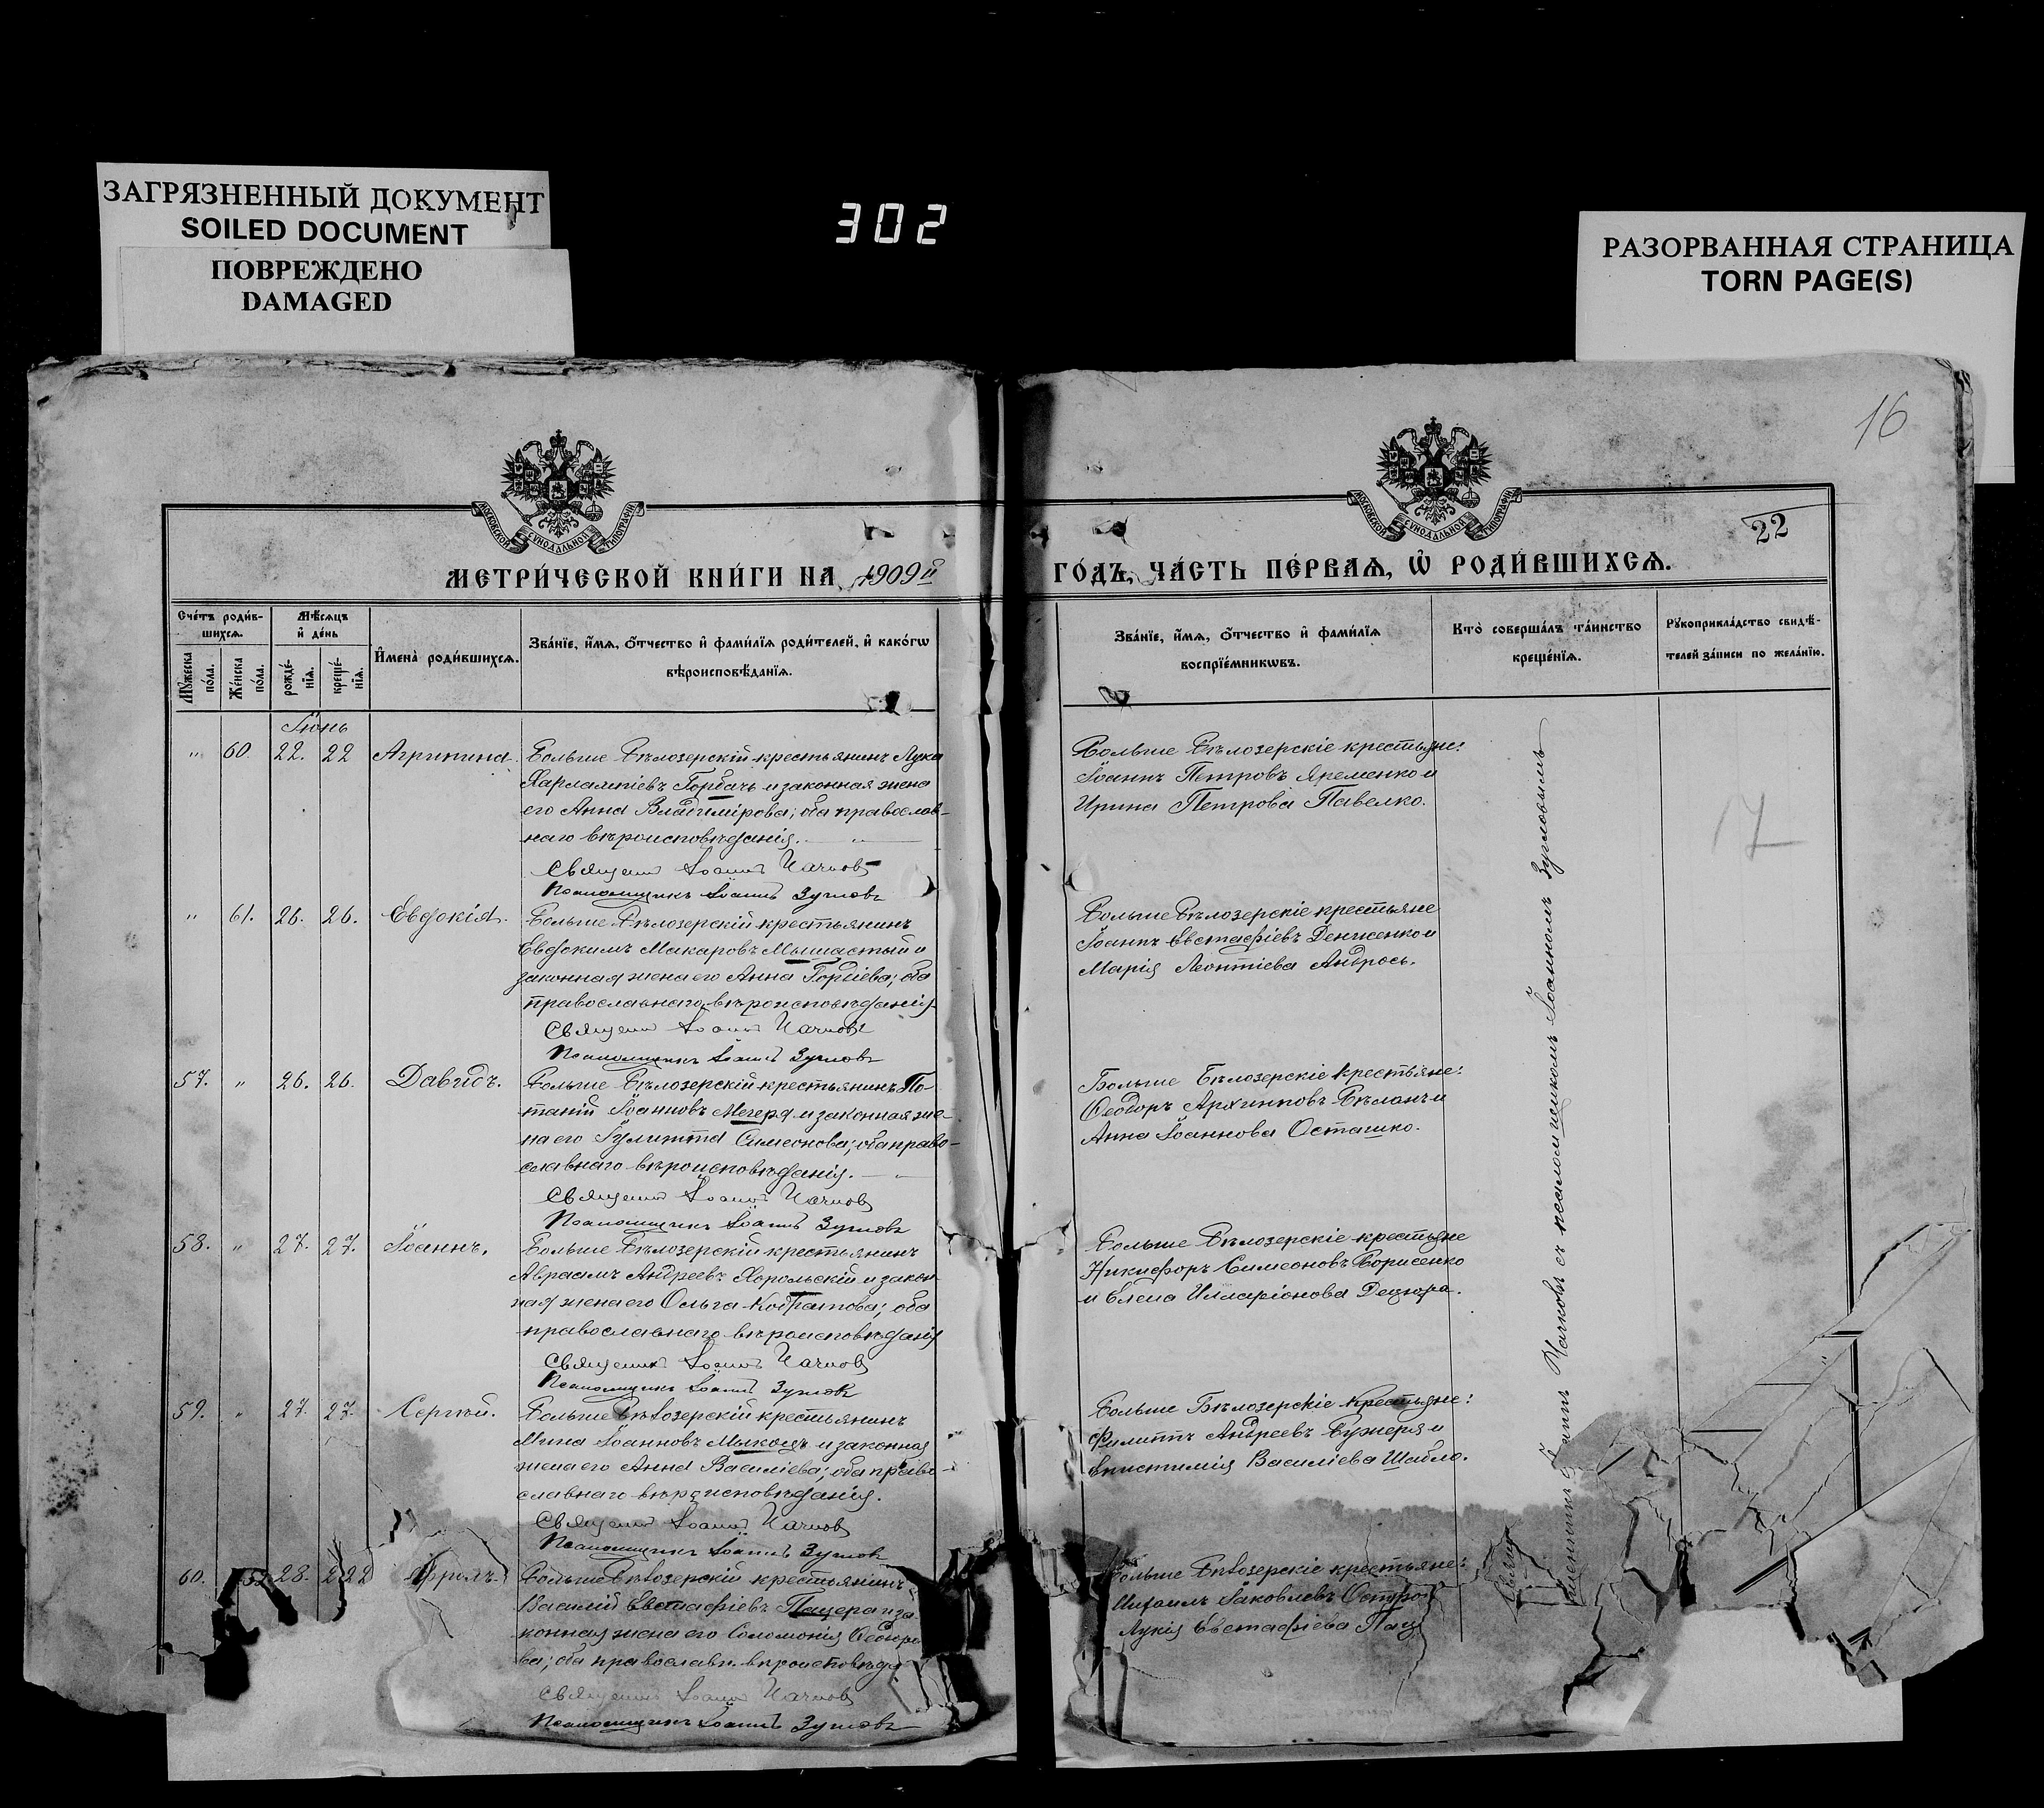 ЗАГРЯЗНЕННЫЙ ДОКУМЕНТ
SOILED DOCUMENT
ПОВРЕЖДЕНО
DAMAGED
302
РАЗОРВАННАЯ СТРАНИЦА
TORN PAGE(S)
16
22
МОСКОВСКОЙ СѴНОДАЛЬНОЙ ТИПОГРАФІИ
МОСКОВСКОЙ СѴНОДАЛЬНОЙ ТИПОГРАФІИ
МЕТРИ́ЧЕСКОЙ КНИ́ГИ НА 1909й ГО́ДЪ, ЧА́СТЬ ПЕ́РВАѦ, Ѡ҆ РОДИ́ВШИХСѦ.
Сче́тъ роди́в-
шихсѧ.
Мꙋ́жеска по́ла.
Же́нска по́ла.
Мѣ́сѧцъ и҆ де́нь
рожде́-
нїѧ.
креще́-
нїѧ.
И҆мена̀ роди́вшихсѧ.
Зва́нїе, и҆́мѧ, ѻ҆́тчество и҆ фами́лїѧ роди́телей, и҆ како́гѡ
вѣроисповѣ́данїѧ.
Зва́нїе, и҆́мѧ, ѻ҆́тчество и҆ фами́лїѧ
воспрїе́мникѡвъ.
Кто̀ соверша́лъ та́инство
креще́нїѧ.
Рꙋкоприкла́дство свидѣ́-
телей за́писи по жела́нїю.
Іюнь
" 60 22. 22 Агрипина.
Больше Бѣлозерскій крестьянинъ Лука
Харлампіевъ Горбачъ и законная жена
его Анна Владимірова; оба православ-
наго вѣроисповѣданія.
Священ Іоаннъ Начновъ
Псаломщикъ Іоаннъ Зугловъ
Больше Бѣлозерскіе крестьяне:
Іоаннъ Петровъ Яременко и
Ирина Петрова Павелко.
17
" 61. 26. 26. Евдокія.
Больше Бѣлозерскій крестьянинъ
Евдокимъ Макаровъ Мышастый и
законная жена его Анна Гордіева; оба
православнаго вѣроисповѣданія
Священ Іоаннъ Начновъ
Псаломщикъ Іоаннъ Зугловъ
Больше Бѣлозерскіе крестьяне
Іоаннъ Евстафіевъ Денисенко и
Марія Леонтіева Андрось.
57. " 26. 26. Давидъ.
Больше Бѣлозерскій крестьянинъ По-
тапій Іоанновъ Мегера и законная же-
на его Іулитта Симеонова; оба право-
славнаго вѣроисповѣданія.
Священ Іоаннъ Начновъ
Псаломщикъ Іоаннъ Зугловъ
Больше Бѣлозерскіе крестьяне:
Ѳеодоръ Архипповъ Бѣланъ и
Анна Іоаннова Осташко.
58. " 27. 27. Іоаннъ.
Больше Бѣлозерскій крестьянинъ
Авраамъ Андреевъ Хорольскій и закон-
ная жена его Ольга Кодратова; оба
православнаго вѣроисповѣданія
Священик Іоаннъ Начновъ
Псаломщикъ Іоаннъ Зугловъ
Больше Бѣлозерскіе крестьяне
Никифоръ Симеоновъ Борисенко
и Елена Илларіонова Децюра.
59. " 27. 27. Сергѣй.
Больше Бѣлозерскій крестьянинъ
Мина Іоанновъ Мыкоцъ и законная
жена его Анна Василіева; оба право-
славнаго вѣроисповѣданія.
Священ Іоаннъ Начновъ
Псаломщикъ Іоаннъ Зугловъ
Больше Бѣлозерскіе крестьяне:
Филиппъ Андреевъ Бужеря и
Епистимія Василіева Шабло.
60. 28. Фролъ.
Больше Бѣлозерскій крестьянинъ
Василій Евстафіевъ Пацера и за-
конная жена его Соломонія Ѳеодоро
ва; оба православн. вѣроисповѣда
Священ Іоаннъ Начновъ
Псаломщикъ Іоаннъ Зугловъ
Больше Бѣлозерскіе крестьяне:
Михаилъ Іаковлевъ
Лукія Евстафіева Пац
Іоаннъ Начновъ съ псаломщикомъ Іоанномъ Зугловымъ